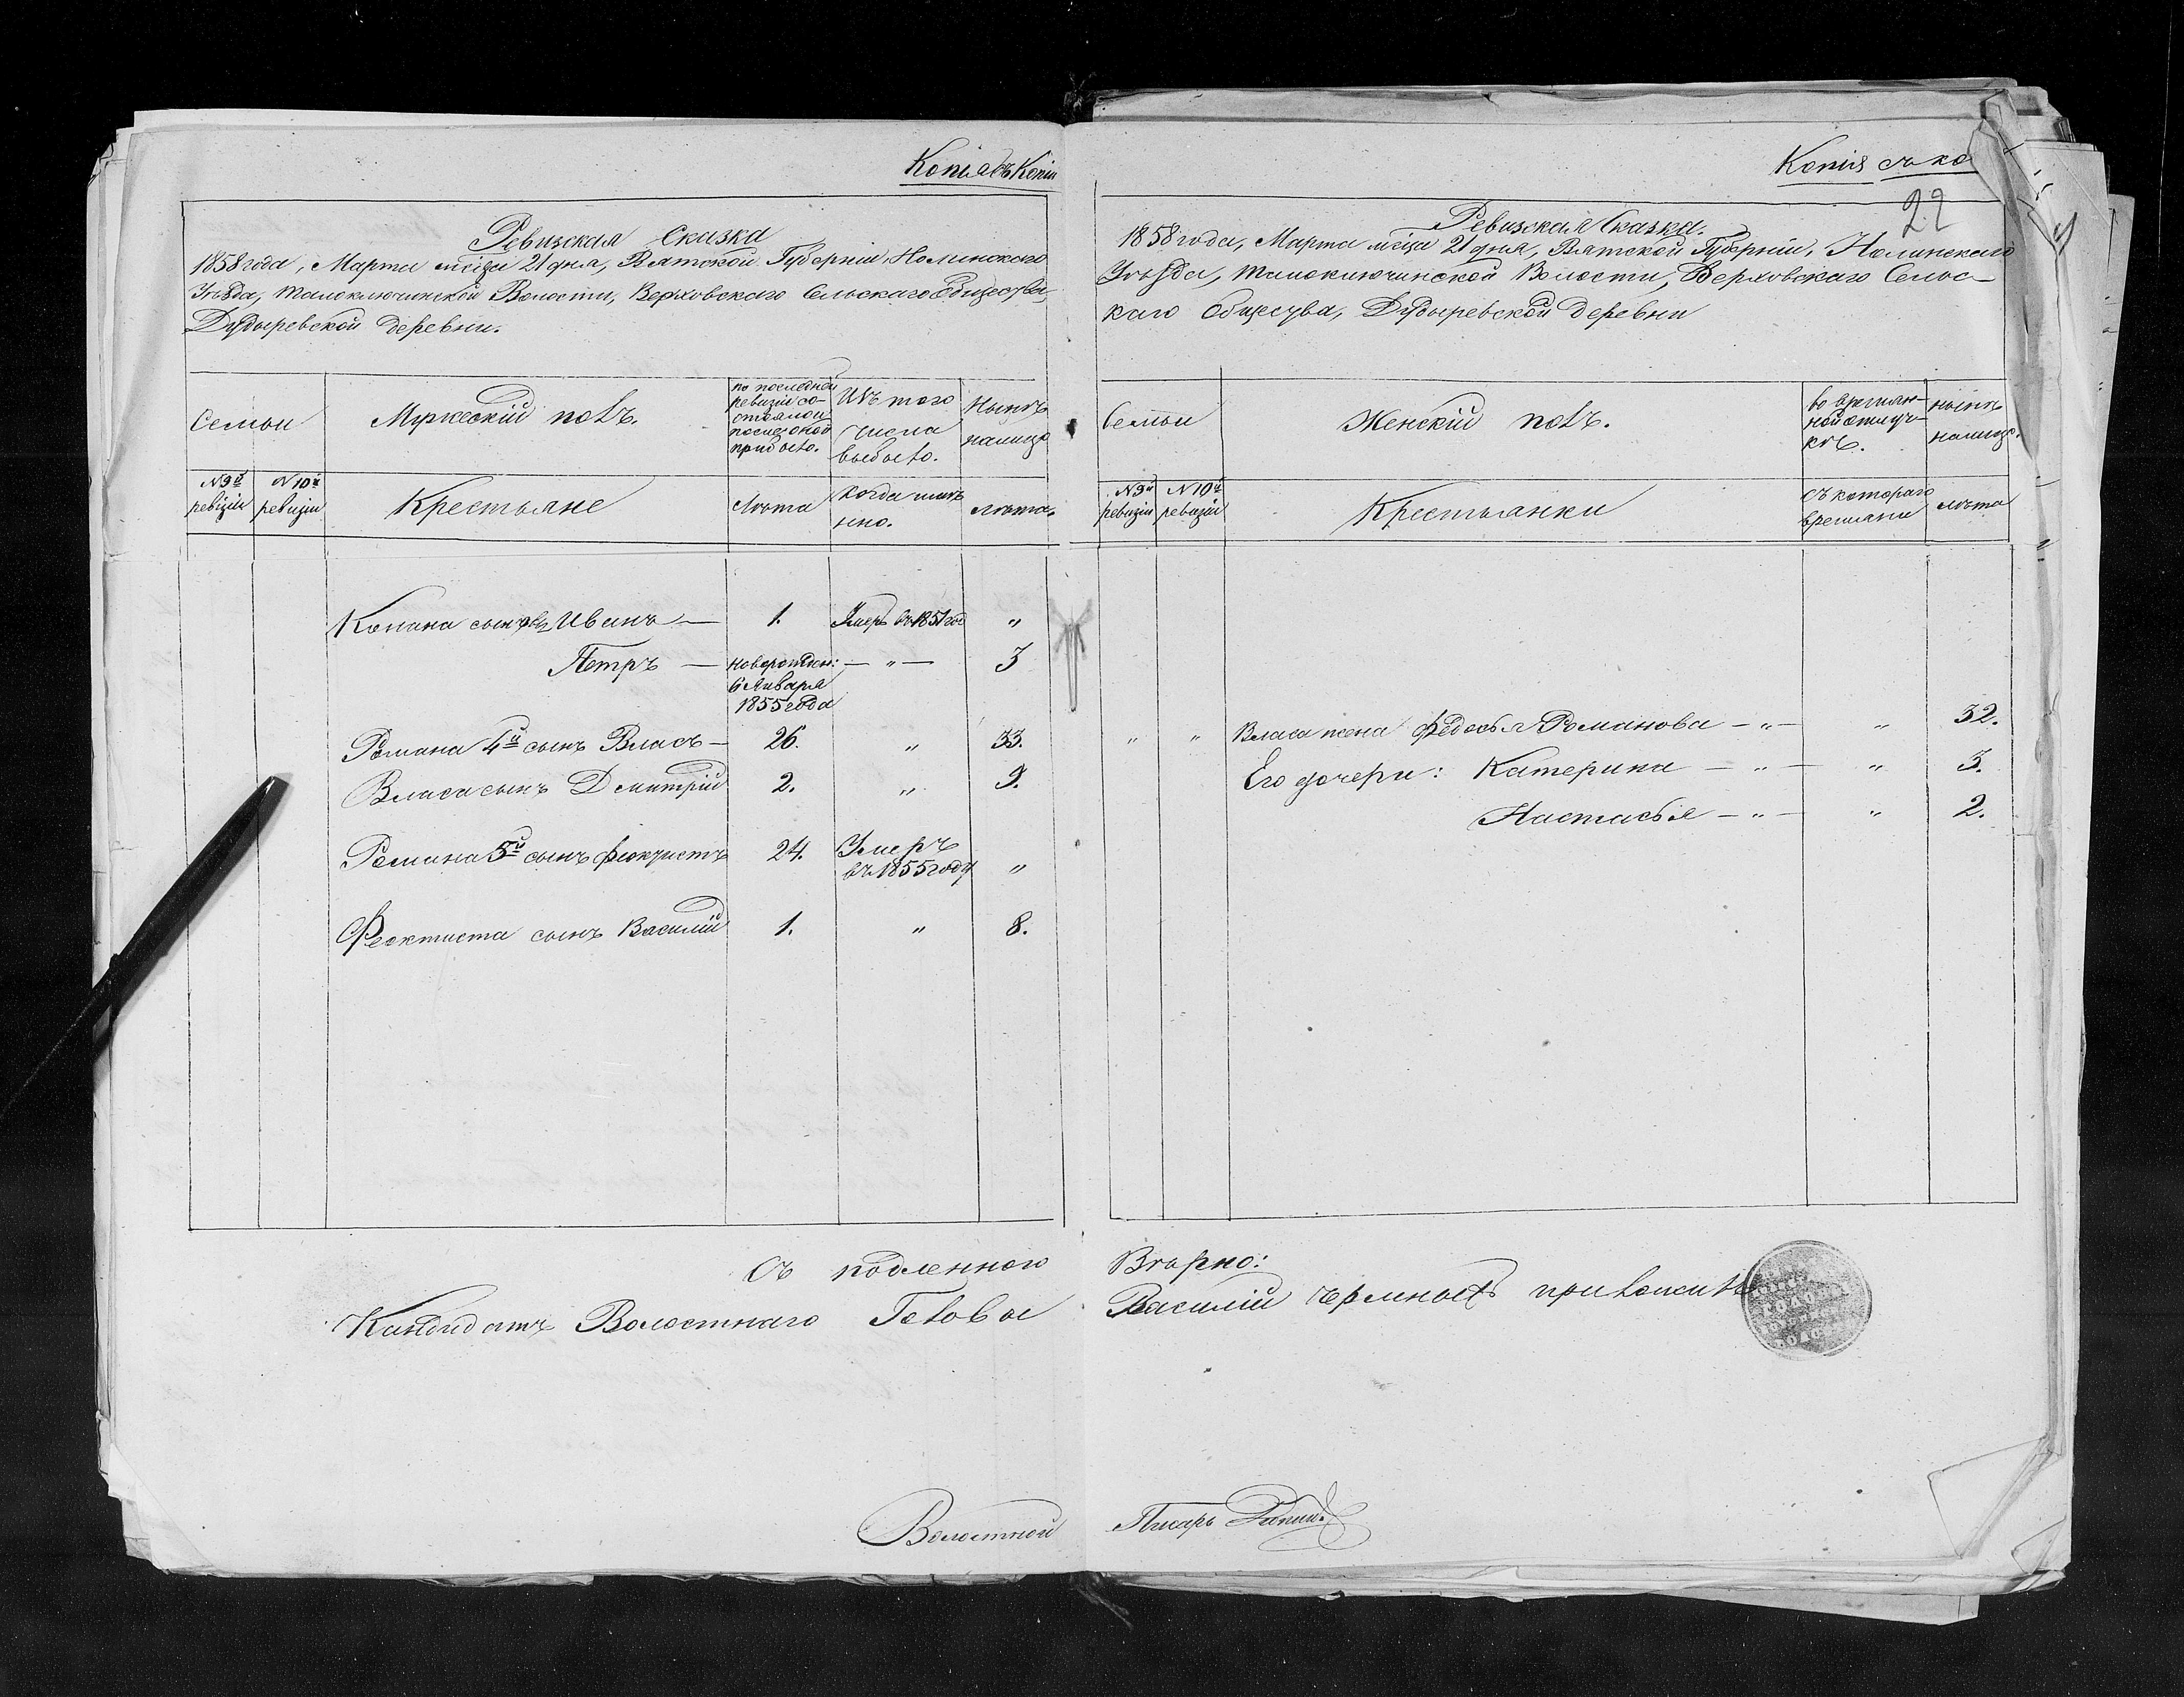 Копія съ Копіи
Ревизская Сказка
1858 года, Марта мсца 21 дня, Вятской Губерніи, Нолинскаго
Уѣзда, Малоключинской Волости, Верховскаго Сельскаго Общества
Дудыревской деревни.
Семьи
Мужескій полъ.
по последней
ревизіи со-
стояло и
после оной
прибыло.
Изъ того
числа
выбыло.
Нынѣ
налицо
№ 9й
ревизіи
№ 10й
ревизіи
Крестьяне
Лѣта
Когда имен-
но.
лѣта.
Конана сыновья Иванъ — 1. Умеръ въ 1851 год "
Петръ — новорожден: — " — 3
6 Января
1855 года
Романа 4й сынъ Власъ — 26. " 33.
Власа сынъ Дмитрій 2. " 9.
Романа 5й сынъ Феоктистъ 24. Умеръ
въ 1855 году "
Феоктиста сынъ Василій 1. " 8.
Съ подленною
Кандидатъ Волостнаго Головы
Волостной
Копия съ ко
22
Ревизская Сказка.
1858 года, Марта мсца 21 дня, Вятской Губерніи, Нолинскаго
Уѣзда, Малоключинской Волости, Верховскаго Сельс-
каго Общества, Дудыревской деревни
Семьи
Женскій полъ.
во времян-
ной отлуч-
кѣ.
нынѣ
налицо.
№ 9й
ревизіи
№ 10й
ревизіи
Крестьянки
съ котораго
времяни
лѣта
" " Власа жена Федосья Романова — " — " 32.
Его дочери: Катерина — " — " 3.
Настасья — " — " 2.
Вѣрно:
Василій приложилъ
Писарь